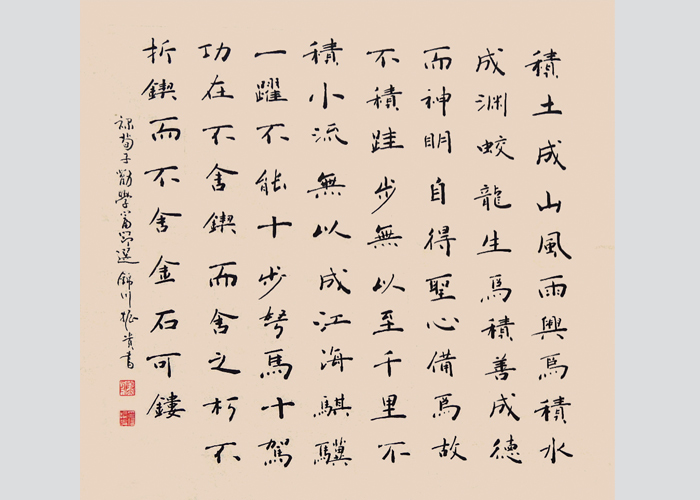 積土成山風雨興焉積水
成渊蛟龍生焉積善成德
而神明自得聖心備焉故
不積跬步無以至千里不
積小流無以成江海騏驥
一躍不能十步駑馬十駕
功在不舍鍥而舍之朽不
折鍥而不舍金石可鏤
録荀子勸學篇節選錦川振貴書